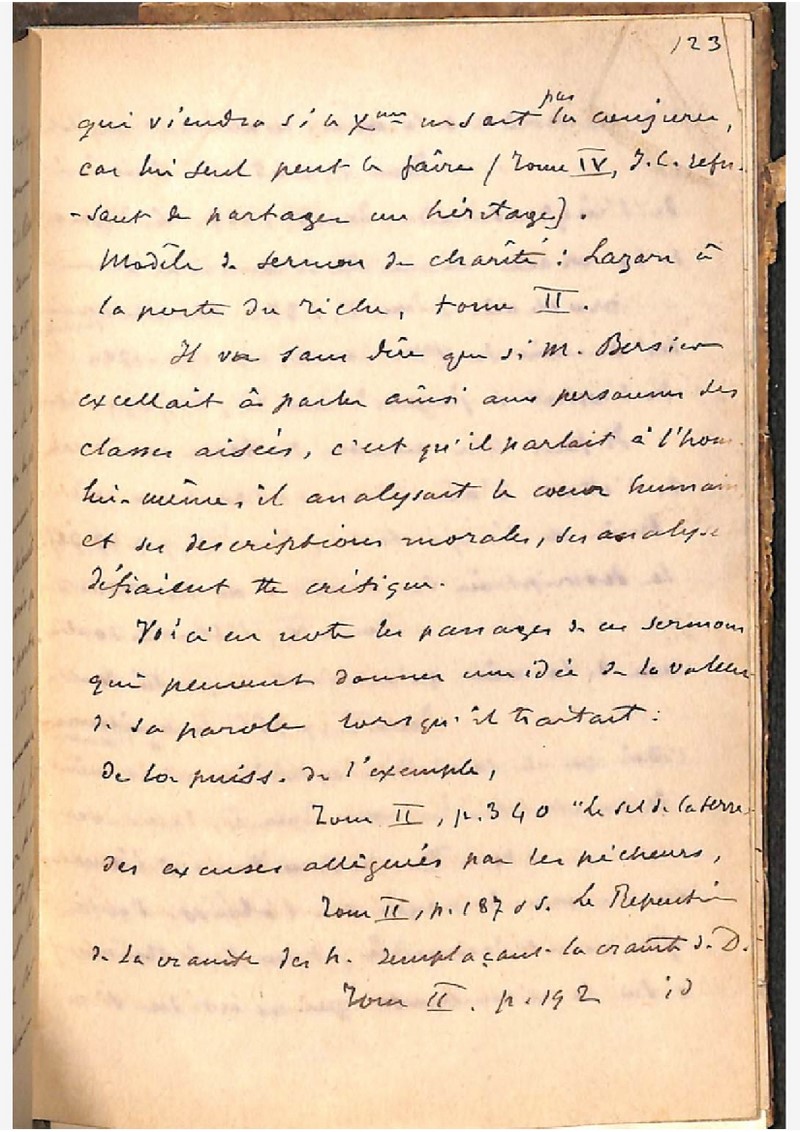 123
qui viendra si le Xme ne sait pas la conjurer,
car lui seul peut le faire (Tome IV, J.C. refu-
-sant de partager un héritage).
Modèle de sermon de charité : Lazare à
la porte du riche, tome II.
Il va sans dire que si M. Bersier
excellait à parler ainsi aux personnes des
classes aisées, c'est qu'il parlait à l'hom
lui-même, il analysait le coeur humain
et ses descriptions morales, ses analyse
défiaient la critique.
Voici en note les passages de ces sermons
qui peuvent donner une idée de la valeur
de sa parole lorsqu'il traitait :
de la puiss. de l'exemple,
Tome II, p. 340 "Le sel de la terre
des excuses alléguées par les pécheurs,
Tome II, p. 187 & s. Le Repentir
de la crainte des h. remplaçant la crainte de D.
Tome II. p. 192 id